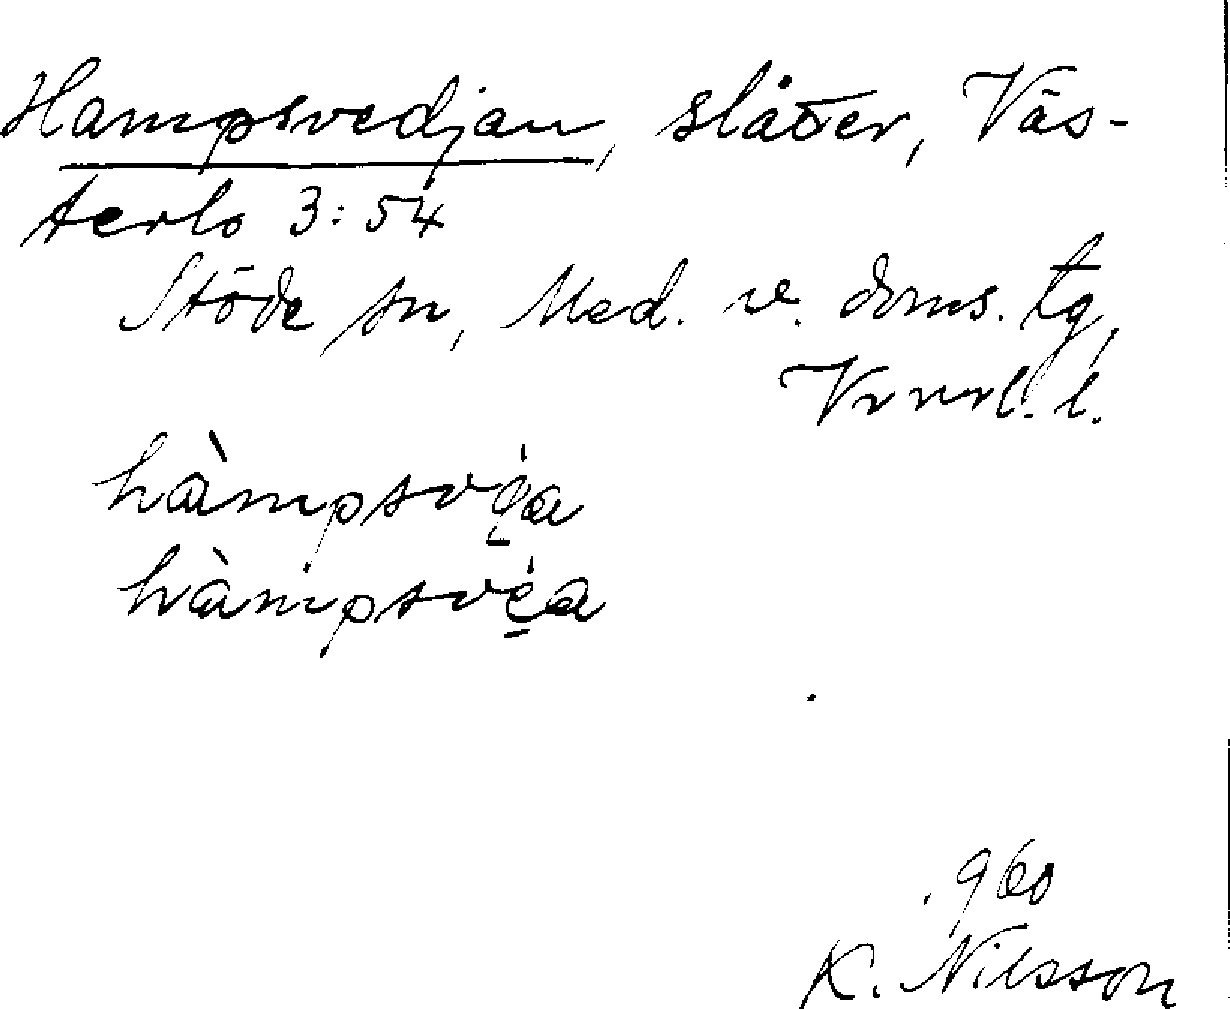 Hampsvedjan, slåtter, Väs-
terlo 3:54
Stöde sn, Med. v. doms. tg,
Vnrrl. l.
hàmpsvéa
hàmpsvéa
960
K. Nilsson